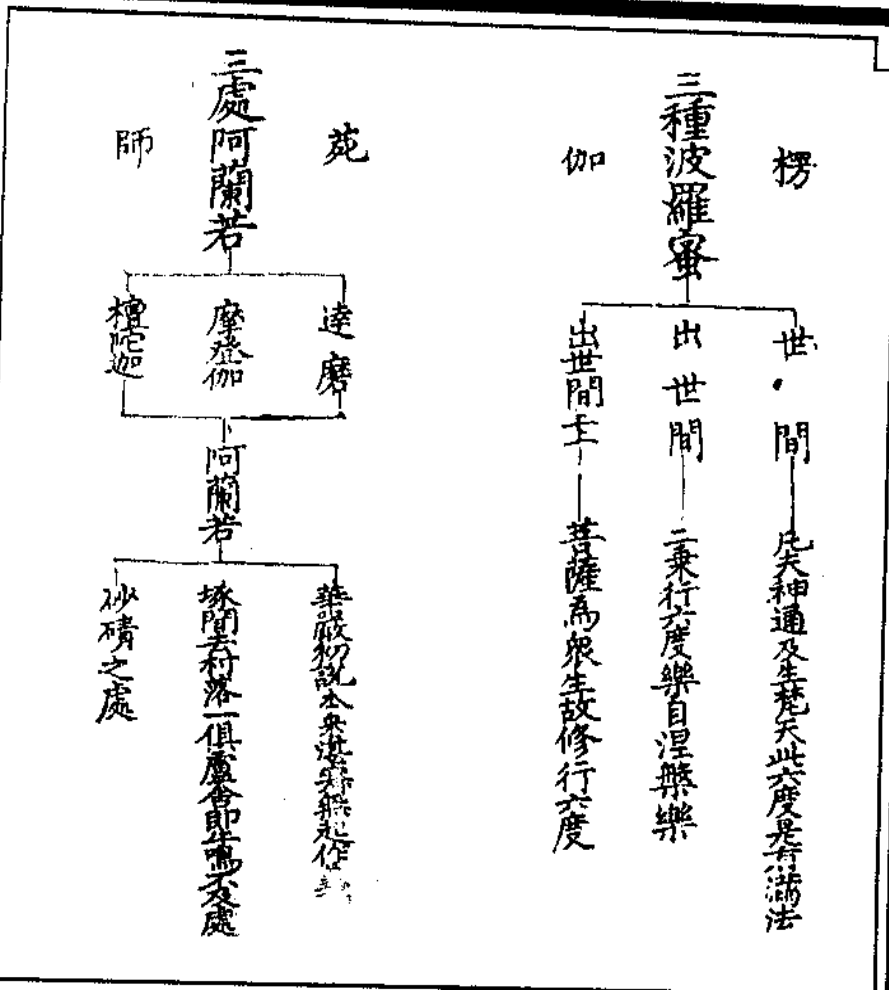 楞
三種波羅蜜
伽
世間
凡夫神通及生梵天此六度是有漏法
出世間
二乗行六度樂自涅槃樂
出世間上
菩薩為衆生故修行六度
苑
三處阿蘭若
師
達磨
摩登伽
檀陀迦
阿蘭若
華嚴初說本來湛寂無起作
塚間去村落一俱盧舍即牛鳴不及處
砂磧之處